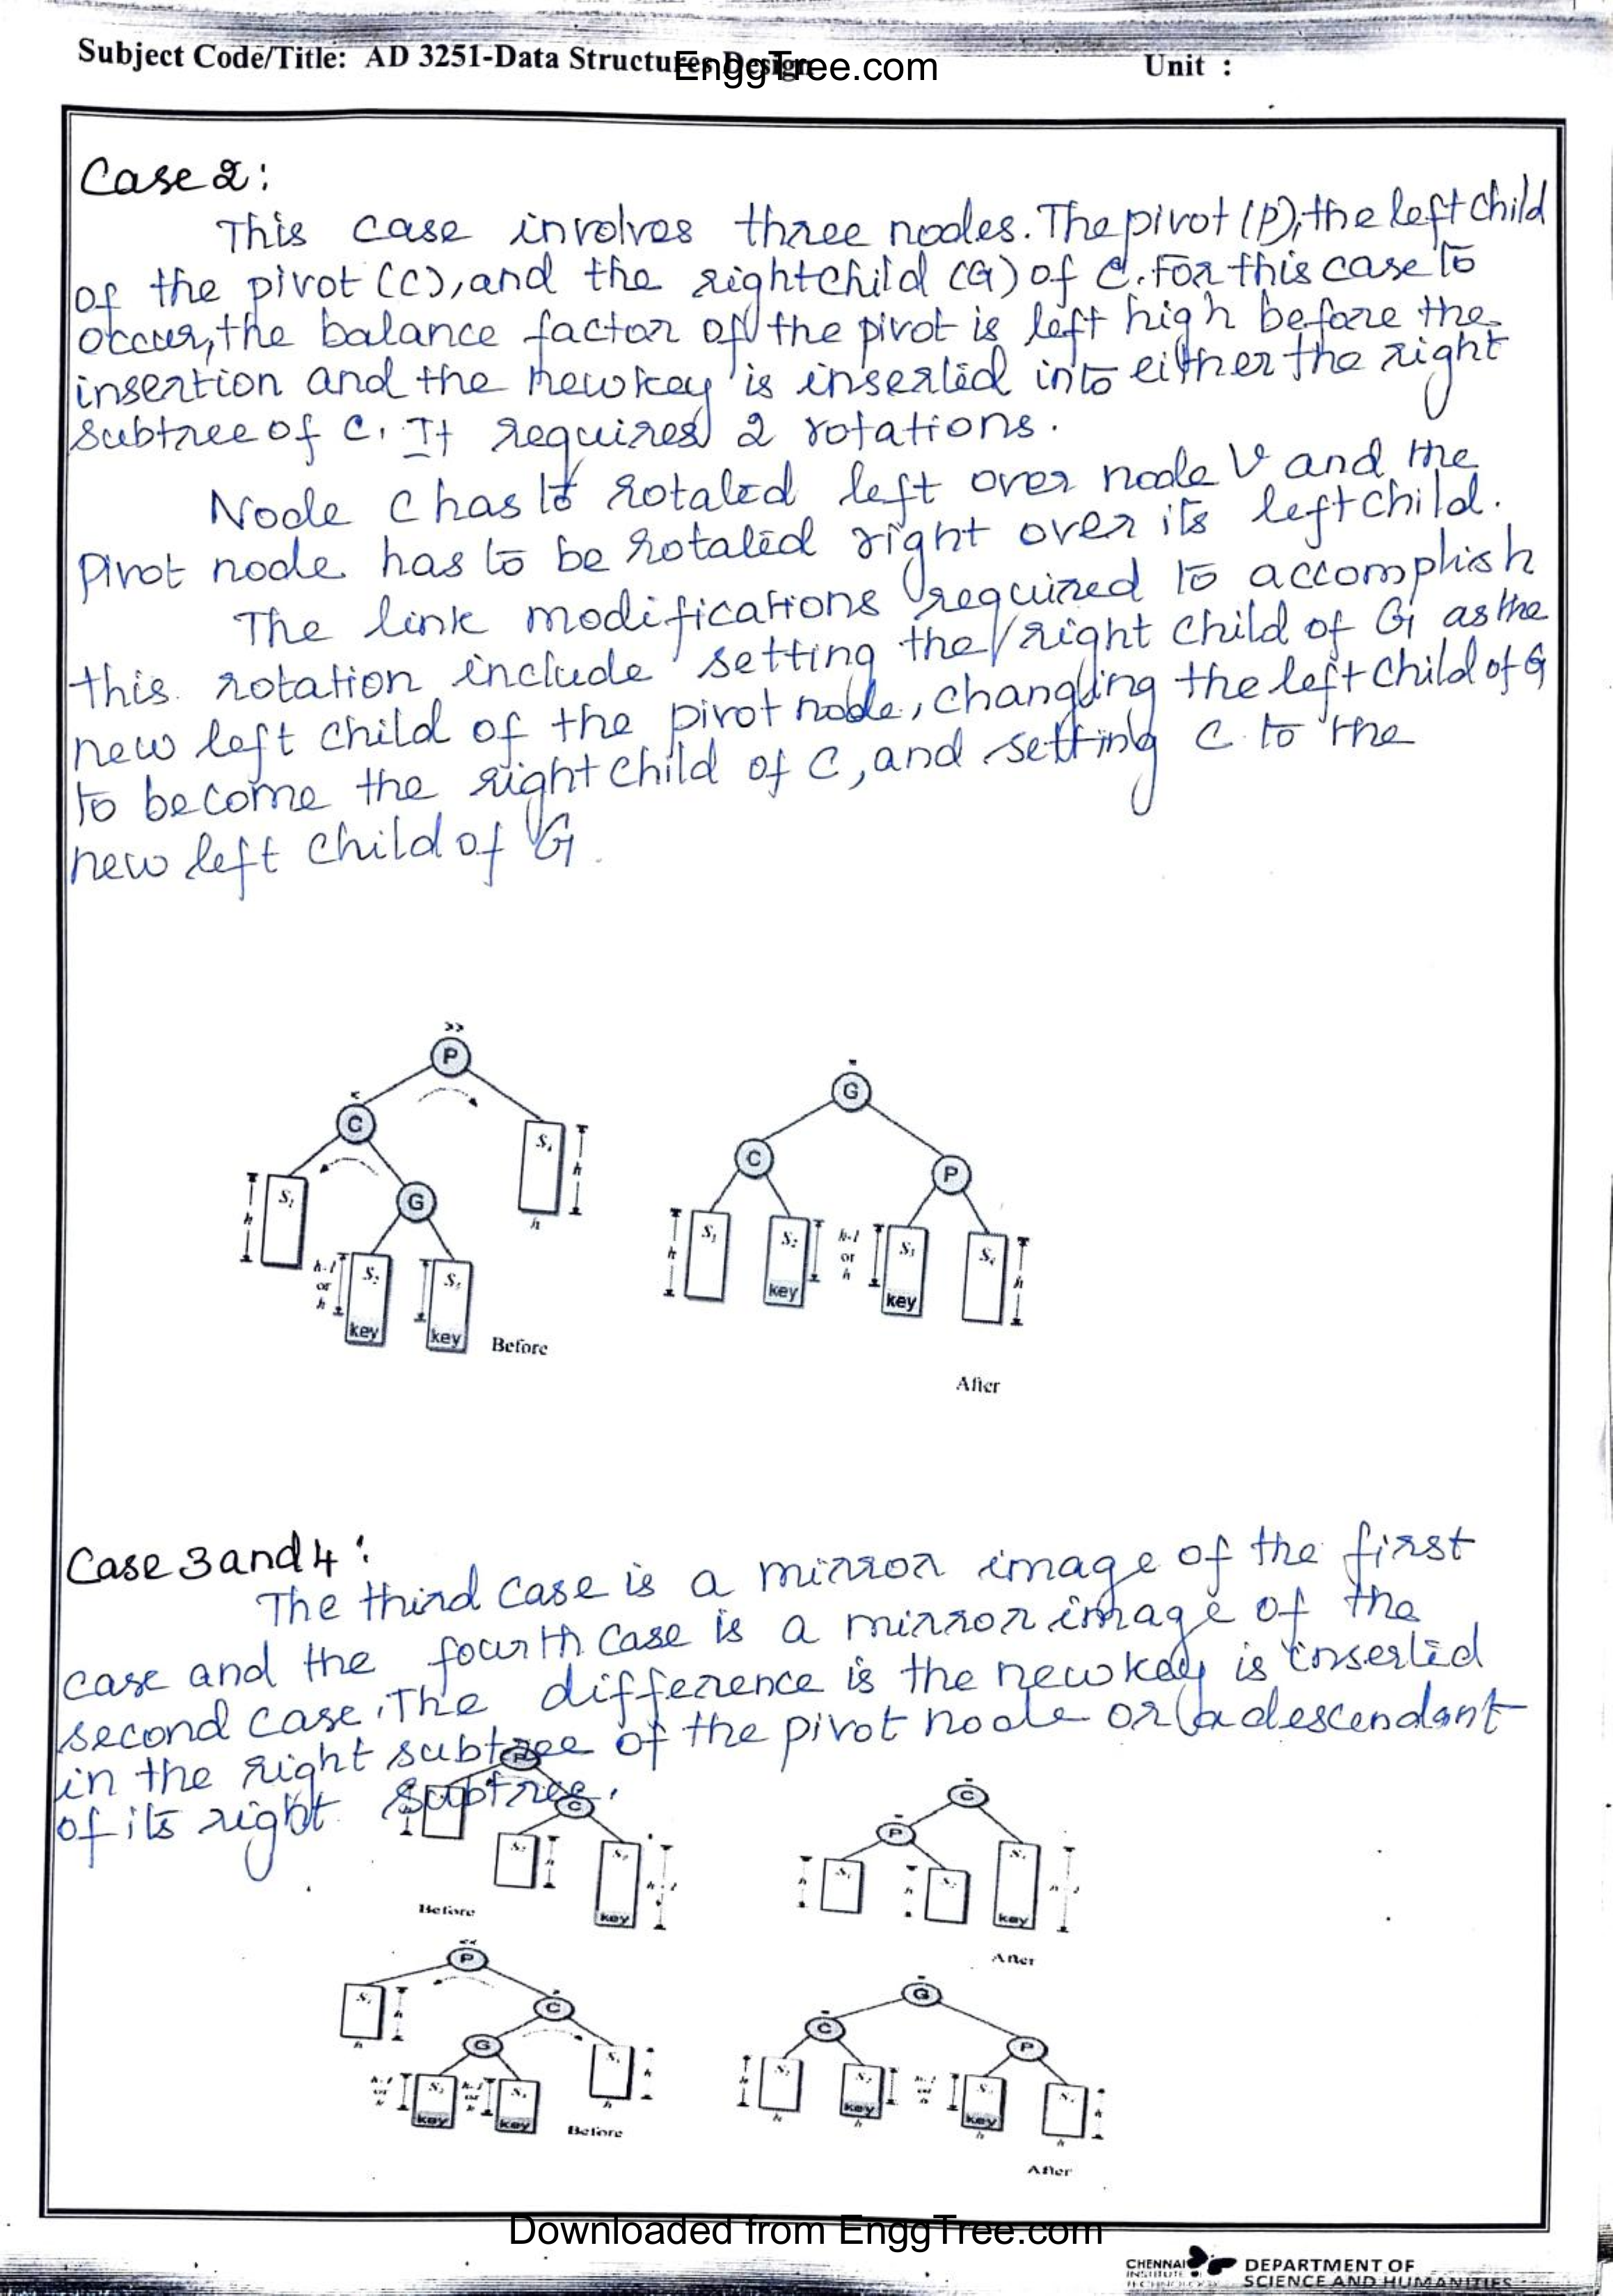 Subject Code/Title: AD 3251-Data Structures Design
EnggTree.com
Unit :
Case 2:
This case involves three nodes. The pivot (P), the left child
of the pivot (C), and the right child (G) of C. For this case to
occur, the balance factor of the pivot is left high before the
insertion and the new key is inserted into either the right
subtree of C. It requires 2 rotations.
Node C has to rotated left over node V and the
Pivot node has to be rotated right over its left child.
The link modifications required to accomplish
this rotation include setting the right child of G as the
new left child of the pivot node, changing the left child of G
to become the right child of C, and setting C to the
new left child of G.
>>
P
<
C
G
S1
h
S4
h
h
h-1
or
h
S2
key
S3
key
Before
-
G
C
P
S1
h
S2
key
h-1
or
h
S3
key
S4
h
After
Case 3 and 4:
The third case is a mirror image of the first
case and the fourth case is a mirror image of the
second case. The difference is the new key is inserted
in the right subtree of the pivot node or a descendant
of its right subtree.
P
C
S2
h
key
Before
C
P
h
h
key
After
<<
P
C
G
S1
h
h
h
key
key
Before
G
C
P
h
key
h
key
h
After
Downloaded from EnggTree.com
CHENNAI
INSTITUTE OF
TECHNOLOGY
DEPARTMENT OF
SCIENCE AND HUMANITIES